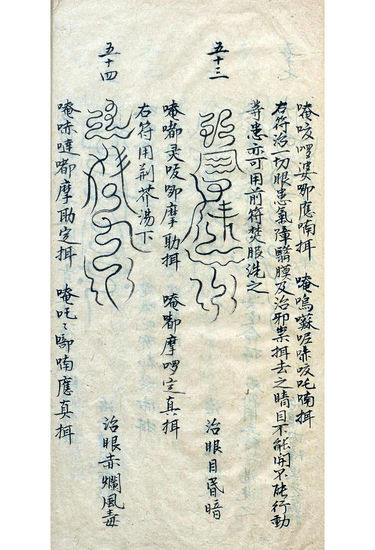 唵㕮啰婆唧應喃揖　唵嗚蘇呢嗦㕮吒喃揖
右符治一切眼患氣障翳膜及治邪祟揖去之睛目不能開不能行動
等患亦可用前符焚服洗之
五十三　治眼目昏暗
唵嘟㕮唧摩助揖　唵嘟摩啰定真揖
右符用荊芥湯下
五十四　治眼赤爛風毒
唵哧噠嘟摩助定揖　唵吒〻唧喃應真揖